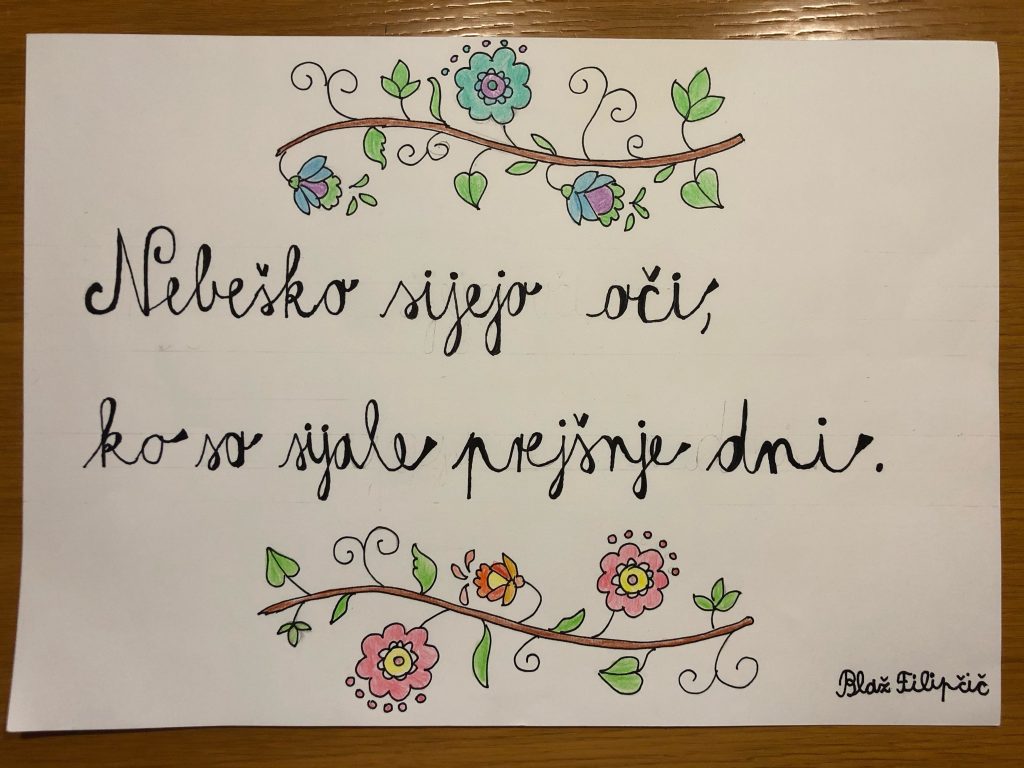 Nebeško sijejo oči,
ko so sijale prejšnje dni.
Blaž Filipčič